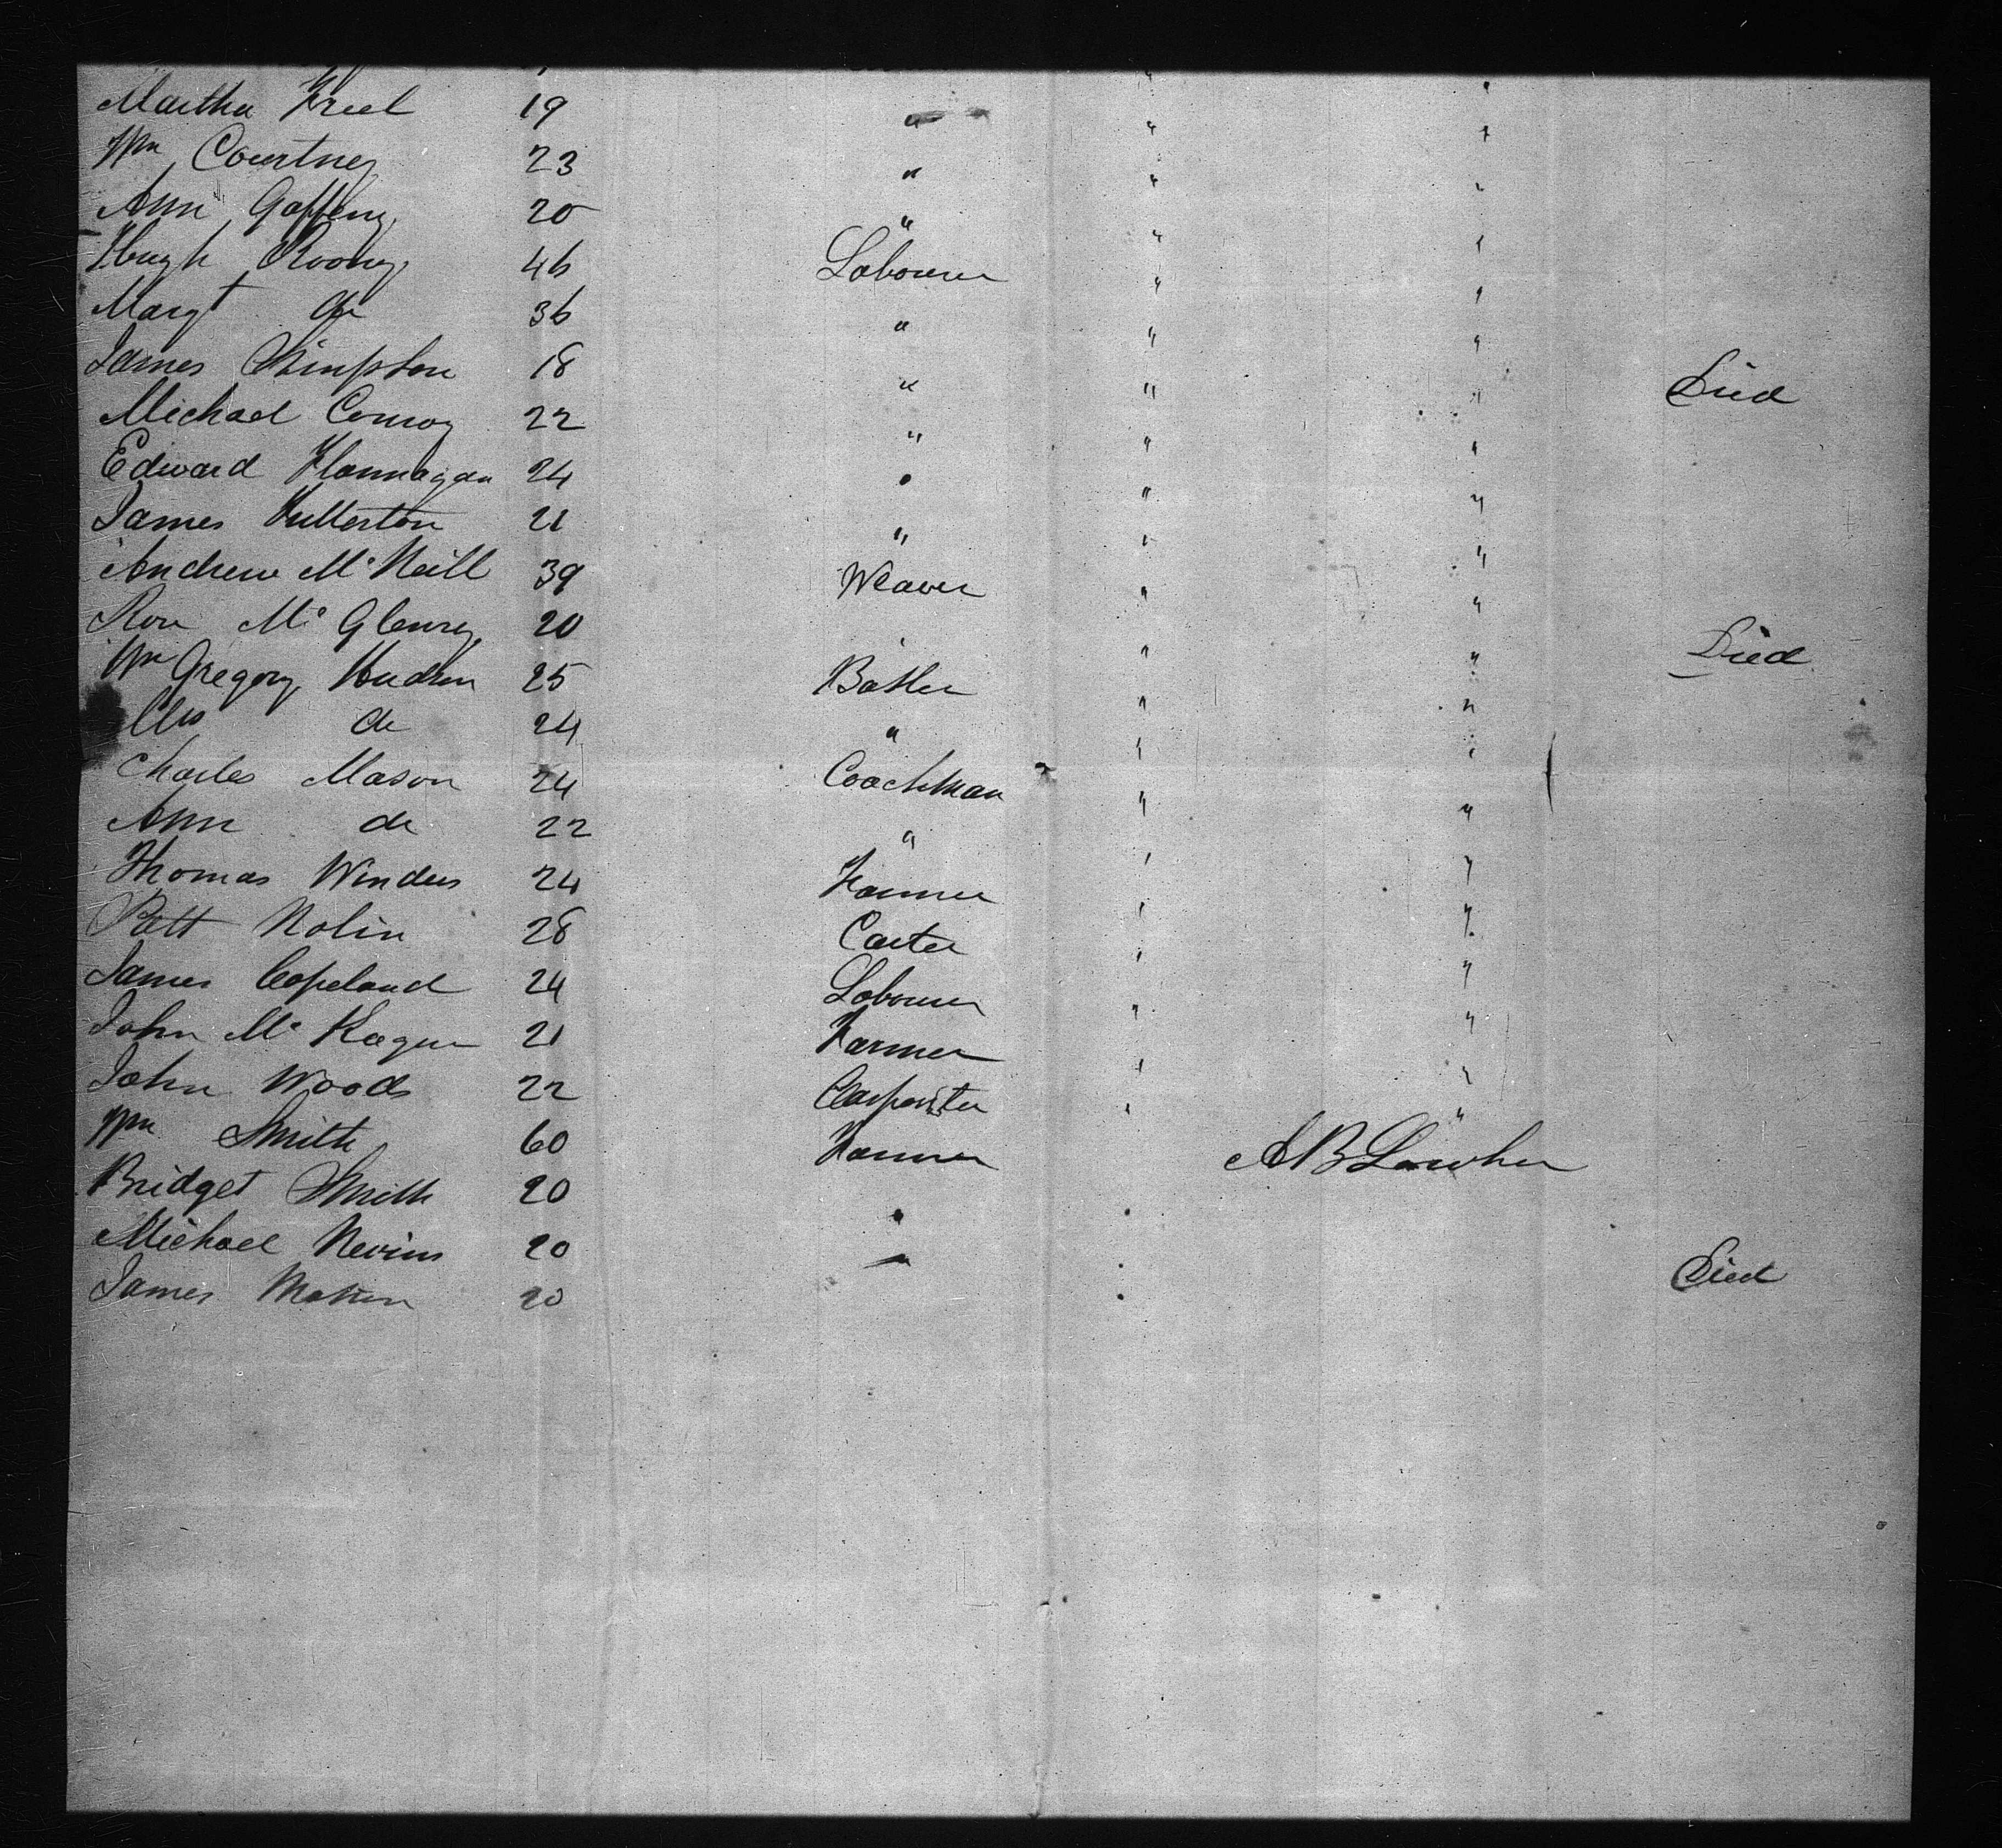 Martha Freel 19 "  "  "
Wm Courtney 23 " " "
Ann Gaffeny 20 " " "
Hugh Roony 46 Labourer " "
Margt do 36 " " "
James Simpson 18 " " " Died
Michael Conroy 22 " " "
Edward Flannagan 24 " " "
James Fullerton 21 " " "
Andrew McNeill 39 Weaver " "
Mc 20 " " Died
Wm Gregory Hudson 25 Butler " "
Mrs do 24 " " "
Charles Mason 24 Coachman " "
Ann do 22 " " "
Thomas Winders 24 Farmer " "
Patt Nolin 28 Carter " "
James Copeland 24 Labourer " "
John Mc 21 Farmer " "
John Woods 22 Carpenter " "
Wm Smith 60 Farmer " "
A B Lowher
Bridget Smith 20 "
Michael Nevins 20 " " Died
James 20 "